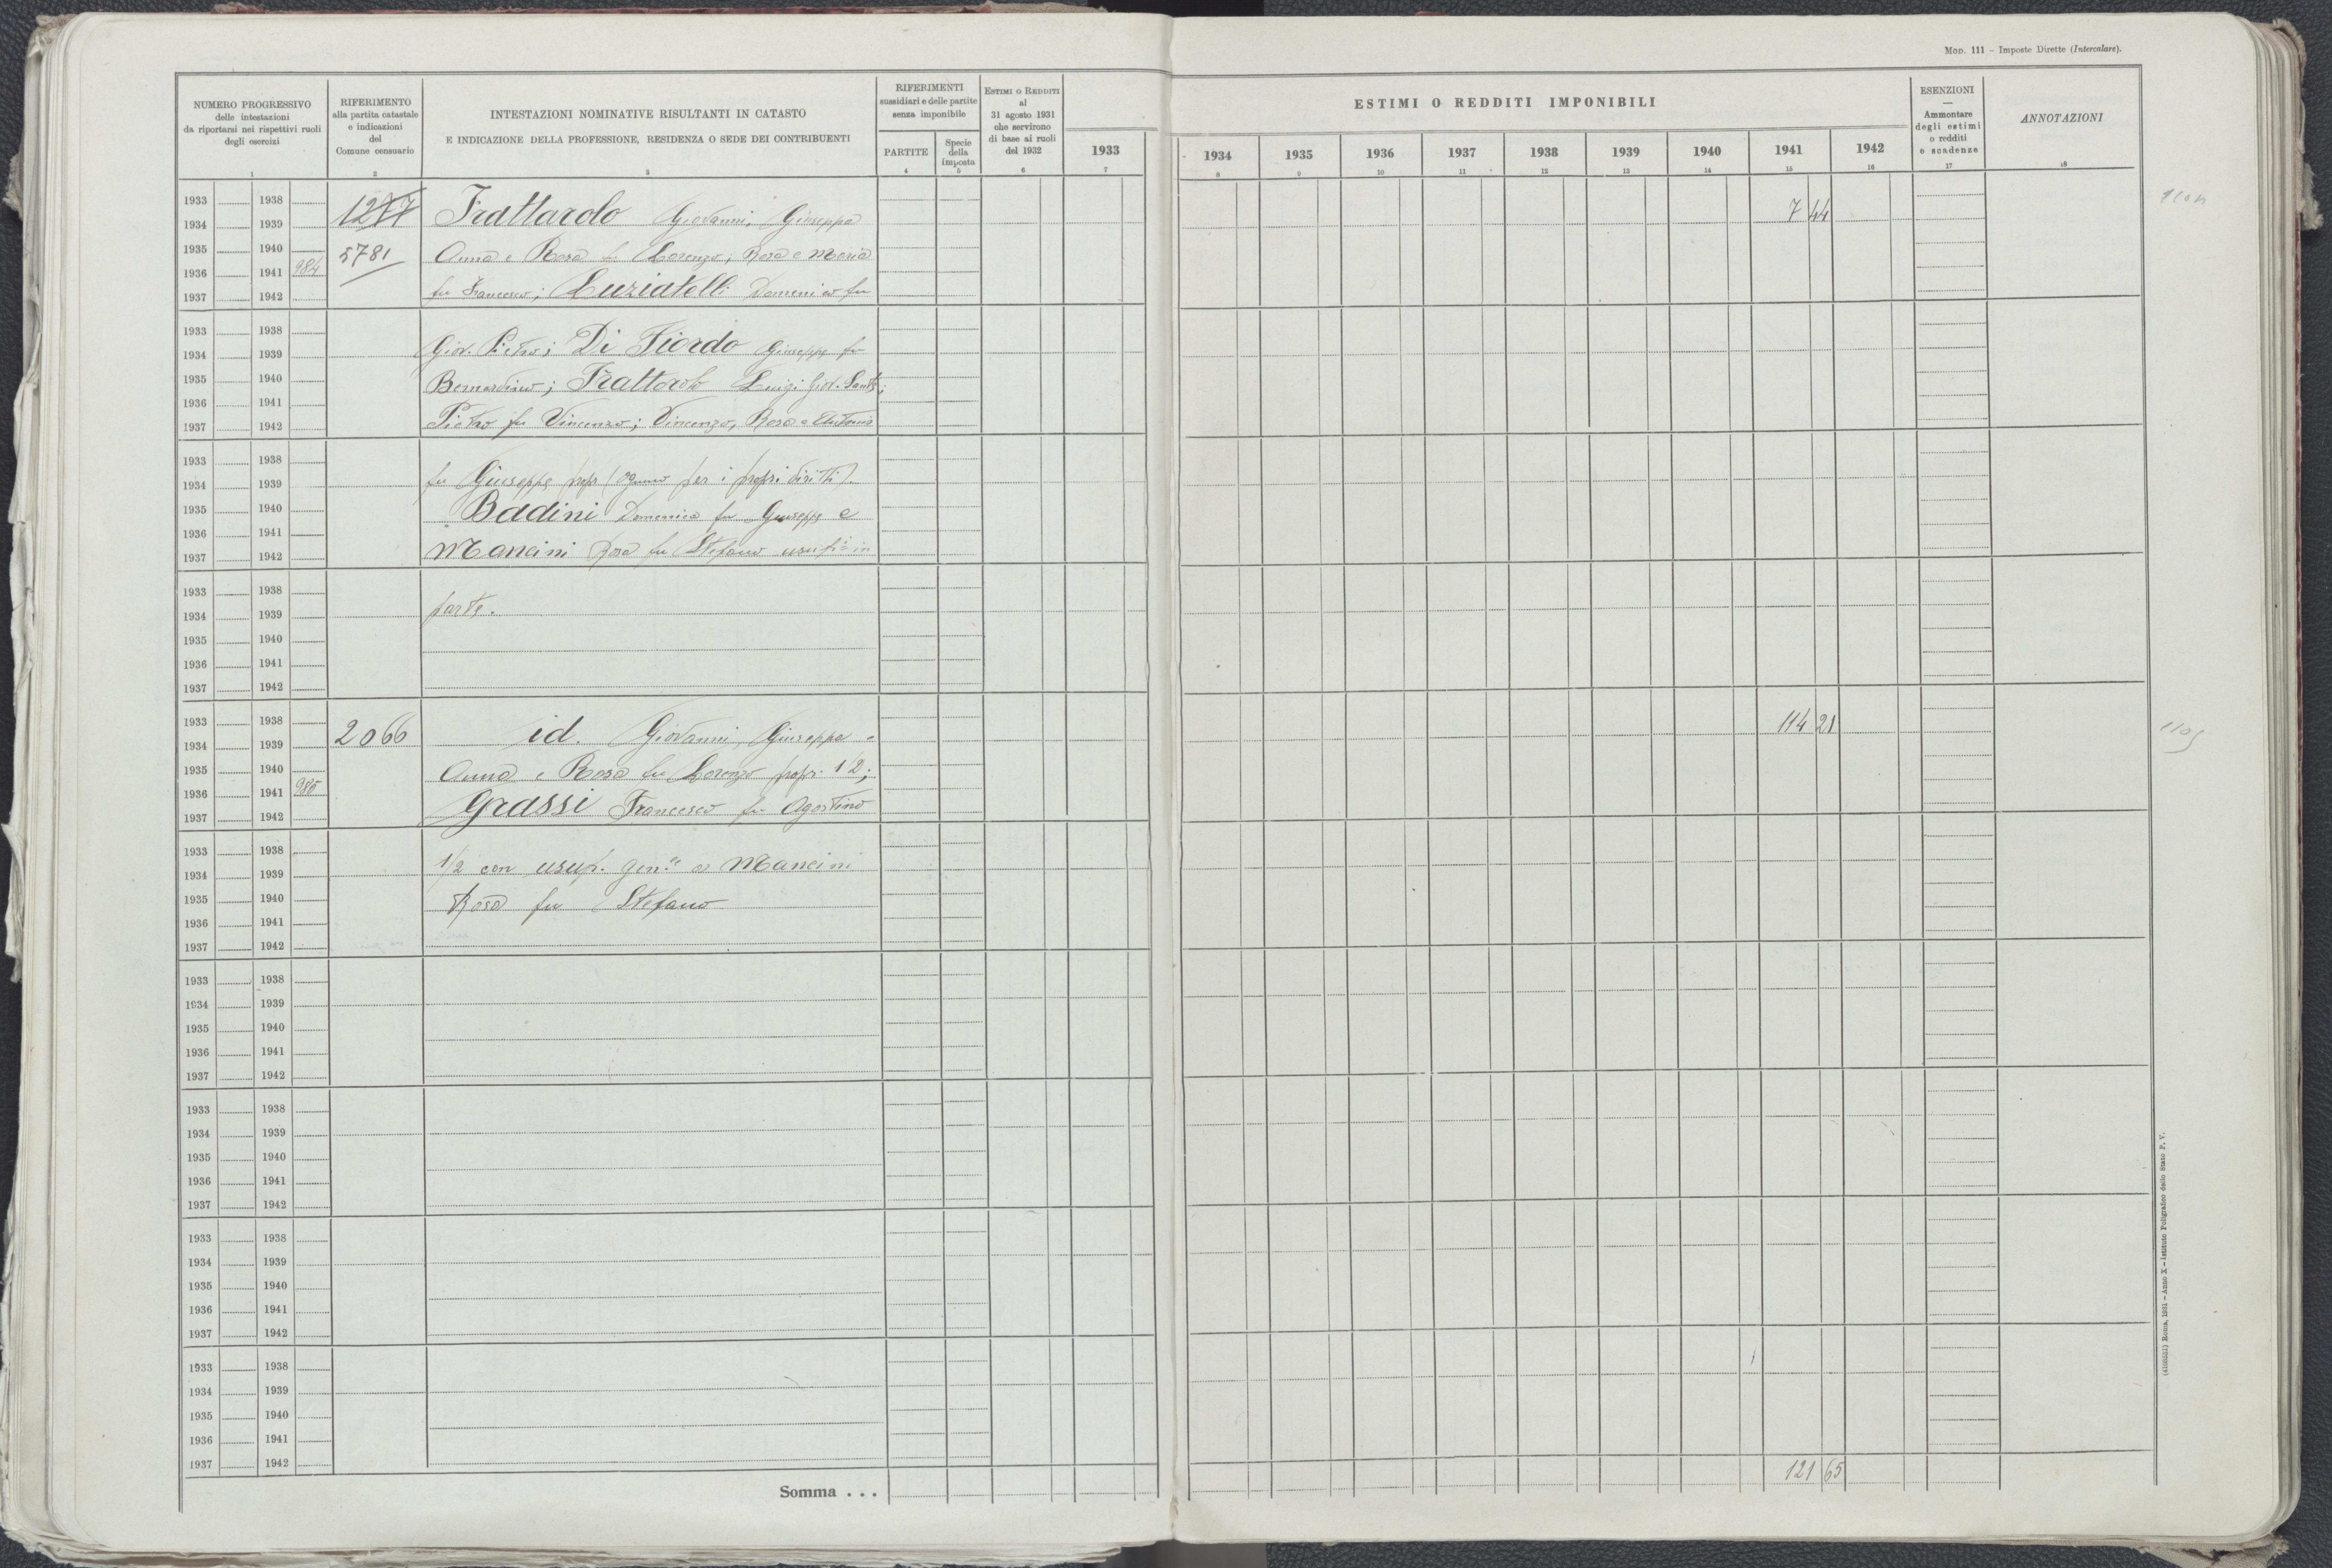 Mod. 111 - Imposte Dirette (Intercalare).
NUMERO PROGRESSIVO
delle intestazioni
da riportarsi nei rispettivi ruoli
degli esercizi
1
RIFERIMENTO
alla partita catastale
e indicazioni
del
Comune censuario
2
INTESTAZIONI NOMINATIVE RISULTANTI IN CATASTO
E INDICAZIONE DELLA PROFESSIONE, RESIDENZA O SEDE DEI CONTRIBUENTI
3
RIFERIMENTI
sussidiari e delle partite
senza imponibile
PARTITE
4
Specie
della
imposta
5
ESTIMI O REDDITI
al
31 agosto 1931
che servirono
di base ai ruoli
del 1932
6
ESTIMI O REDDITI IMPONIBILI
1933 1934 1935 1936 1937 1938 1939 1940 1941 1942
7 8 9 10 11 12 13 14 15 16
ESENZIONI
—
Ammontare
degli estimi
o redditi
e scadenze
17
ANNOTAZIONI
18
1933 1938
1934 1939 1277 Frattarolo Giovanni, Giuseppa 7 44
1935 1940 5781 Anna e Rosa fu Lorenzo; Rosa e Maria
1936 1941 984
1937 1942 fu Francesco; Luziatelli Domenico fu
1933 1938
1934 1939 Giov. Pietro; Di Fiordo Giuseppe fu
1935 1940 Bernardino; Frattarolo Luigi Giov. Sante;
1936 1941
1937 1942 Pietro fu Vincenzo; Vincenzo, Rosa e Antonia
1933 1938
1934 1939 fu Giuseppe propr (ognuno per i propri diritti).
1935 1940 Badini Domenica fu Giuseppe e
1936 1941
1937 1942 Mancini Rosa fu Stefano in
1933 1938
1934 1939 parte.
1935 1940
1936 1941
1937 1942
1933 1938
1934 1939 2066 id. Giovanni, Giuseppa 114 21
1935 1940 Anna e Rosa fu Lorenzo propr. 1/2;
1936 1941 985
1937 1942 Grassi Francesco fu Agostino
1933 1938
1934 1939 1/2 con usuf. gen.le a Mancini
1935 1940 Rosa fu Stefano
1936 1941
1937 1942
1933 1938
1934 1939
1935 1940
1936 1941
1937 1942
1933 1938
1934 1939
1935 1940
1936 1941
1937 1942
1933 1938
1934 1939
1935 1940
1936 1941
1937 1942
1933 1938
1934 1939
1935 1940
1936 1941
1937 1942
Somma . . . 121 65
Roma, 1931 - Anno X - Istituto Poligrafico dello Stato P. V.